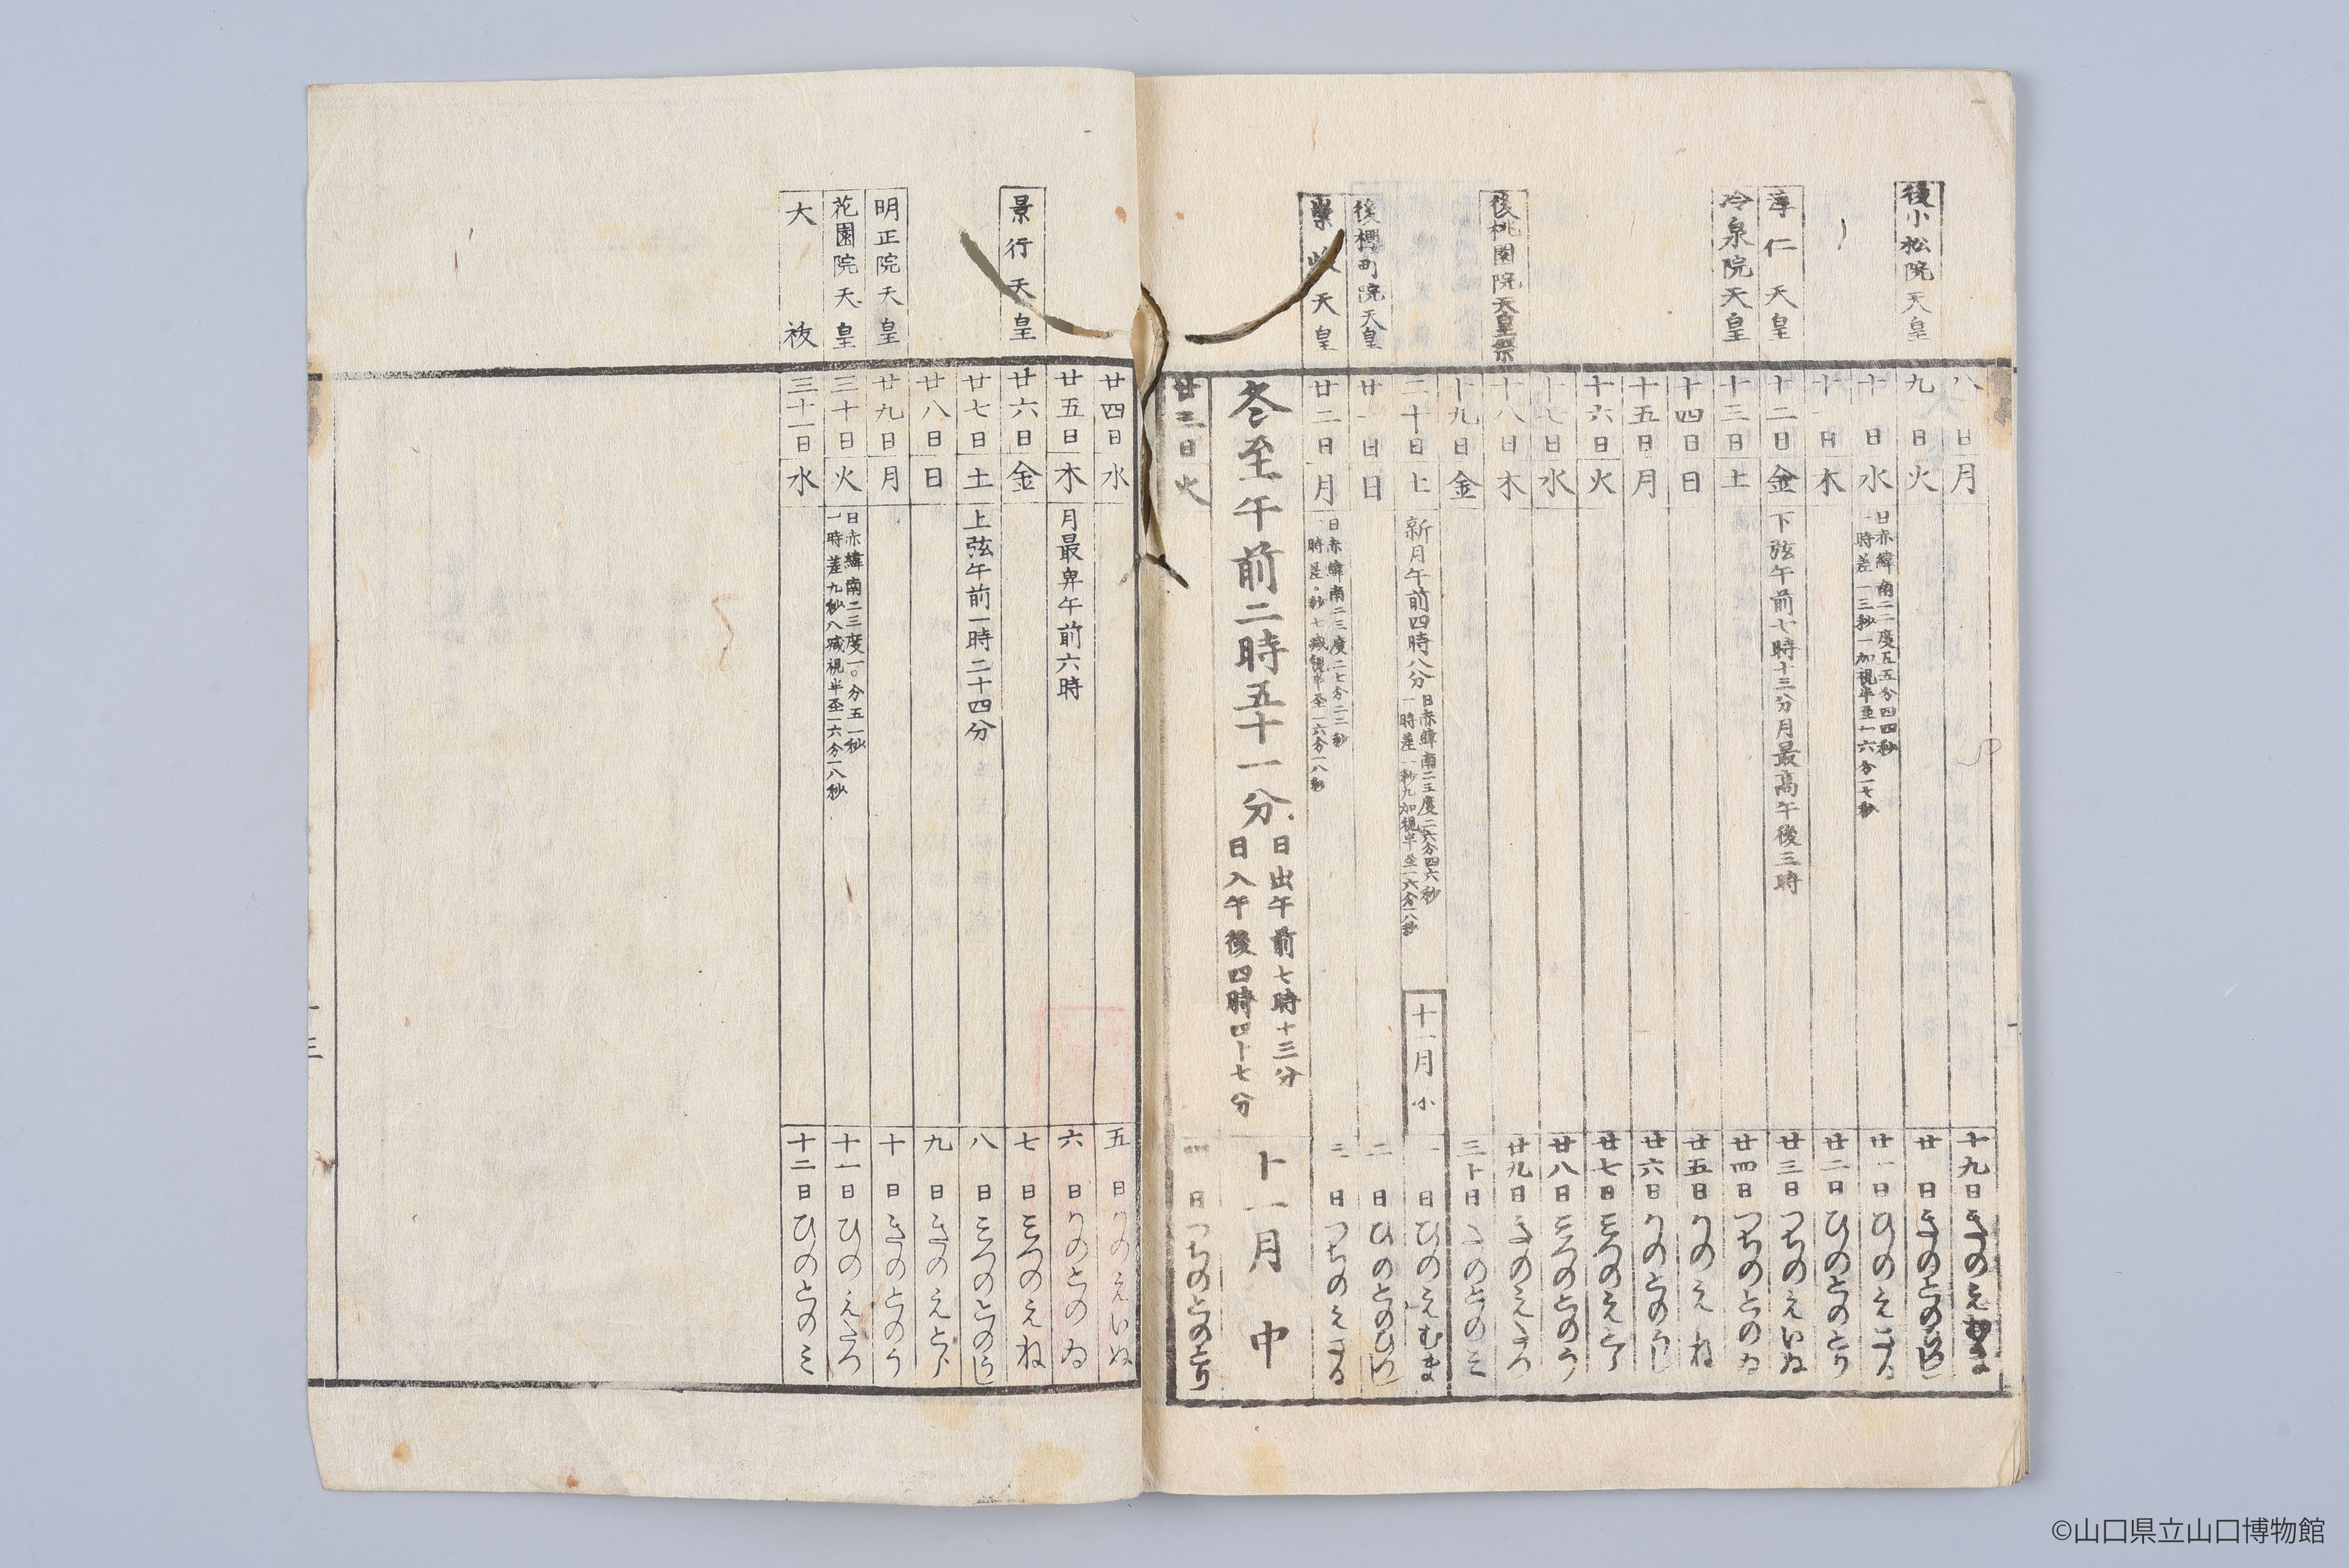 後小松院天皇
淳仁天皇
冷泉院天皇
後桃園院天皇祭
後櫻町院天皇
崇峻天皇
八日月 十九日きのえむま
九日火 廿日きのとのひつじ
十日水 日赤緯南二二度五五分四四秒
一時差一三秒一加視半至一六分一七秒
廿一日ひのえさる
十一日木 廿二日ひのとのとり
十二日金 下弦午前七時十三分月最高午後三時 廿三日つちのえいぬ
十三日土 廿四日つちのとのゐ
十四日日 廿五日かのえね
十五日月 廿六日かのとのうし
十六日火 廿七日みつのえとら
十七日水 廿八日みつのとのう
十八日木 廿九日きのえたつ
十九日金 三十日きのとのミ
二十日土 新月午前四時八分 日赤緯南二三度二六分四六秒
一時差一秒九加視半至一六分一八秒
十一月小
一日ひのえむま
廿一日日 二日ひのとのひつじ
廿二日月 日赤緯南二三度二七分二二秒
一時差〇秒七減視半至一六分一八秒
三日つちのえさる
冬至午前二時五十一分 日出午前七時十三分
日入午後四時四十七分
十一月中
廿三日火 日つちのとのとり
景行天皇
明正院天皇
花園院天皇
大祓
廿四日水 五日かのえいぬ
廿五日木 月最卑午前六時 六日かのとのゐ
廿六日金 七日みつのえね
廿七日土 上弦午前一時二十四分 八日みつのとのうし
廿八日日 九日きのえとら
廿九日月 十日きのとのう
三十日火 日赤緯南二三度一〇分五一秒
一時差九秒八減視半至一六分一八秒
十一日ひのえたつ
三十一日水 十二日ひのとのミ
©山口県立山口博物館